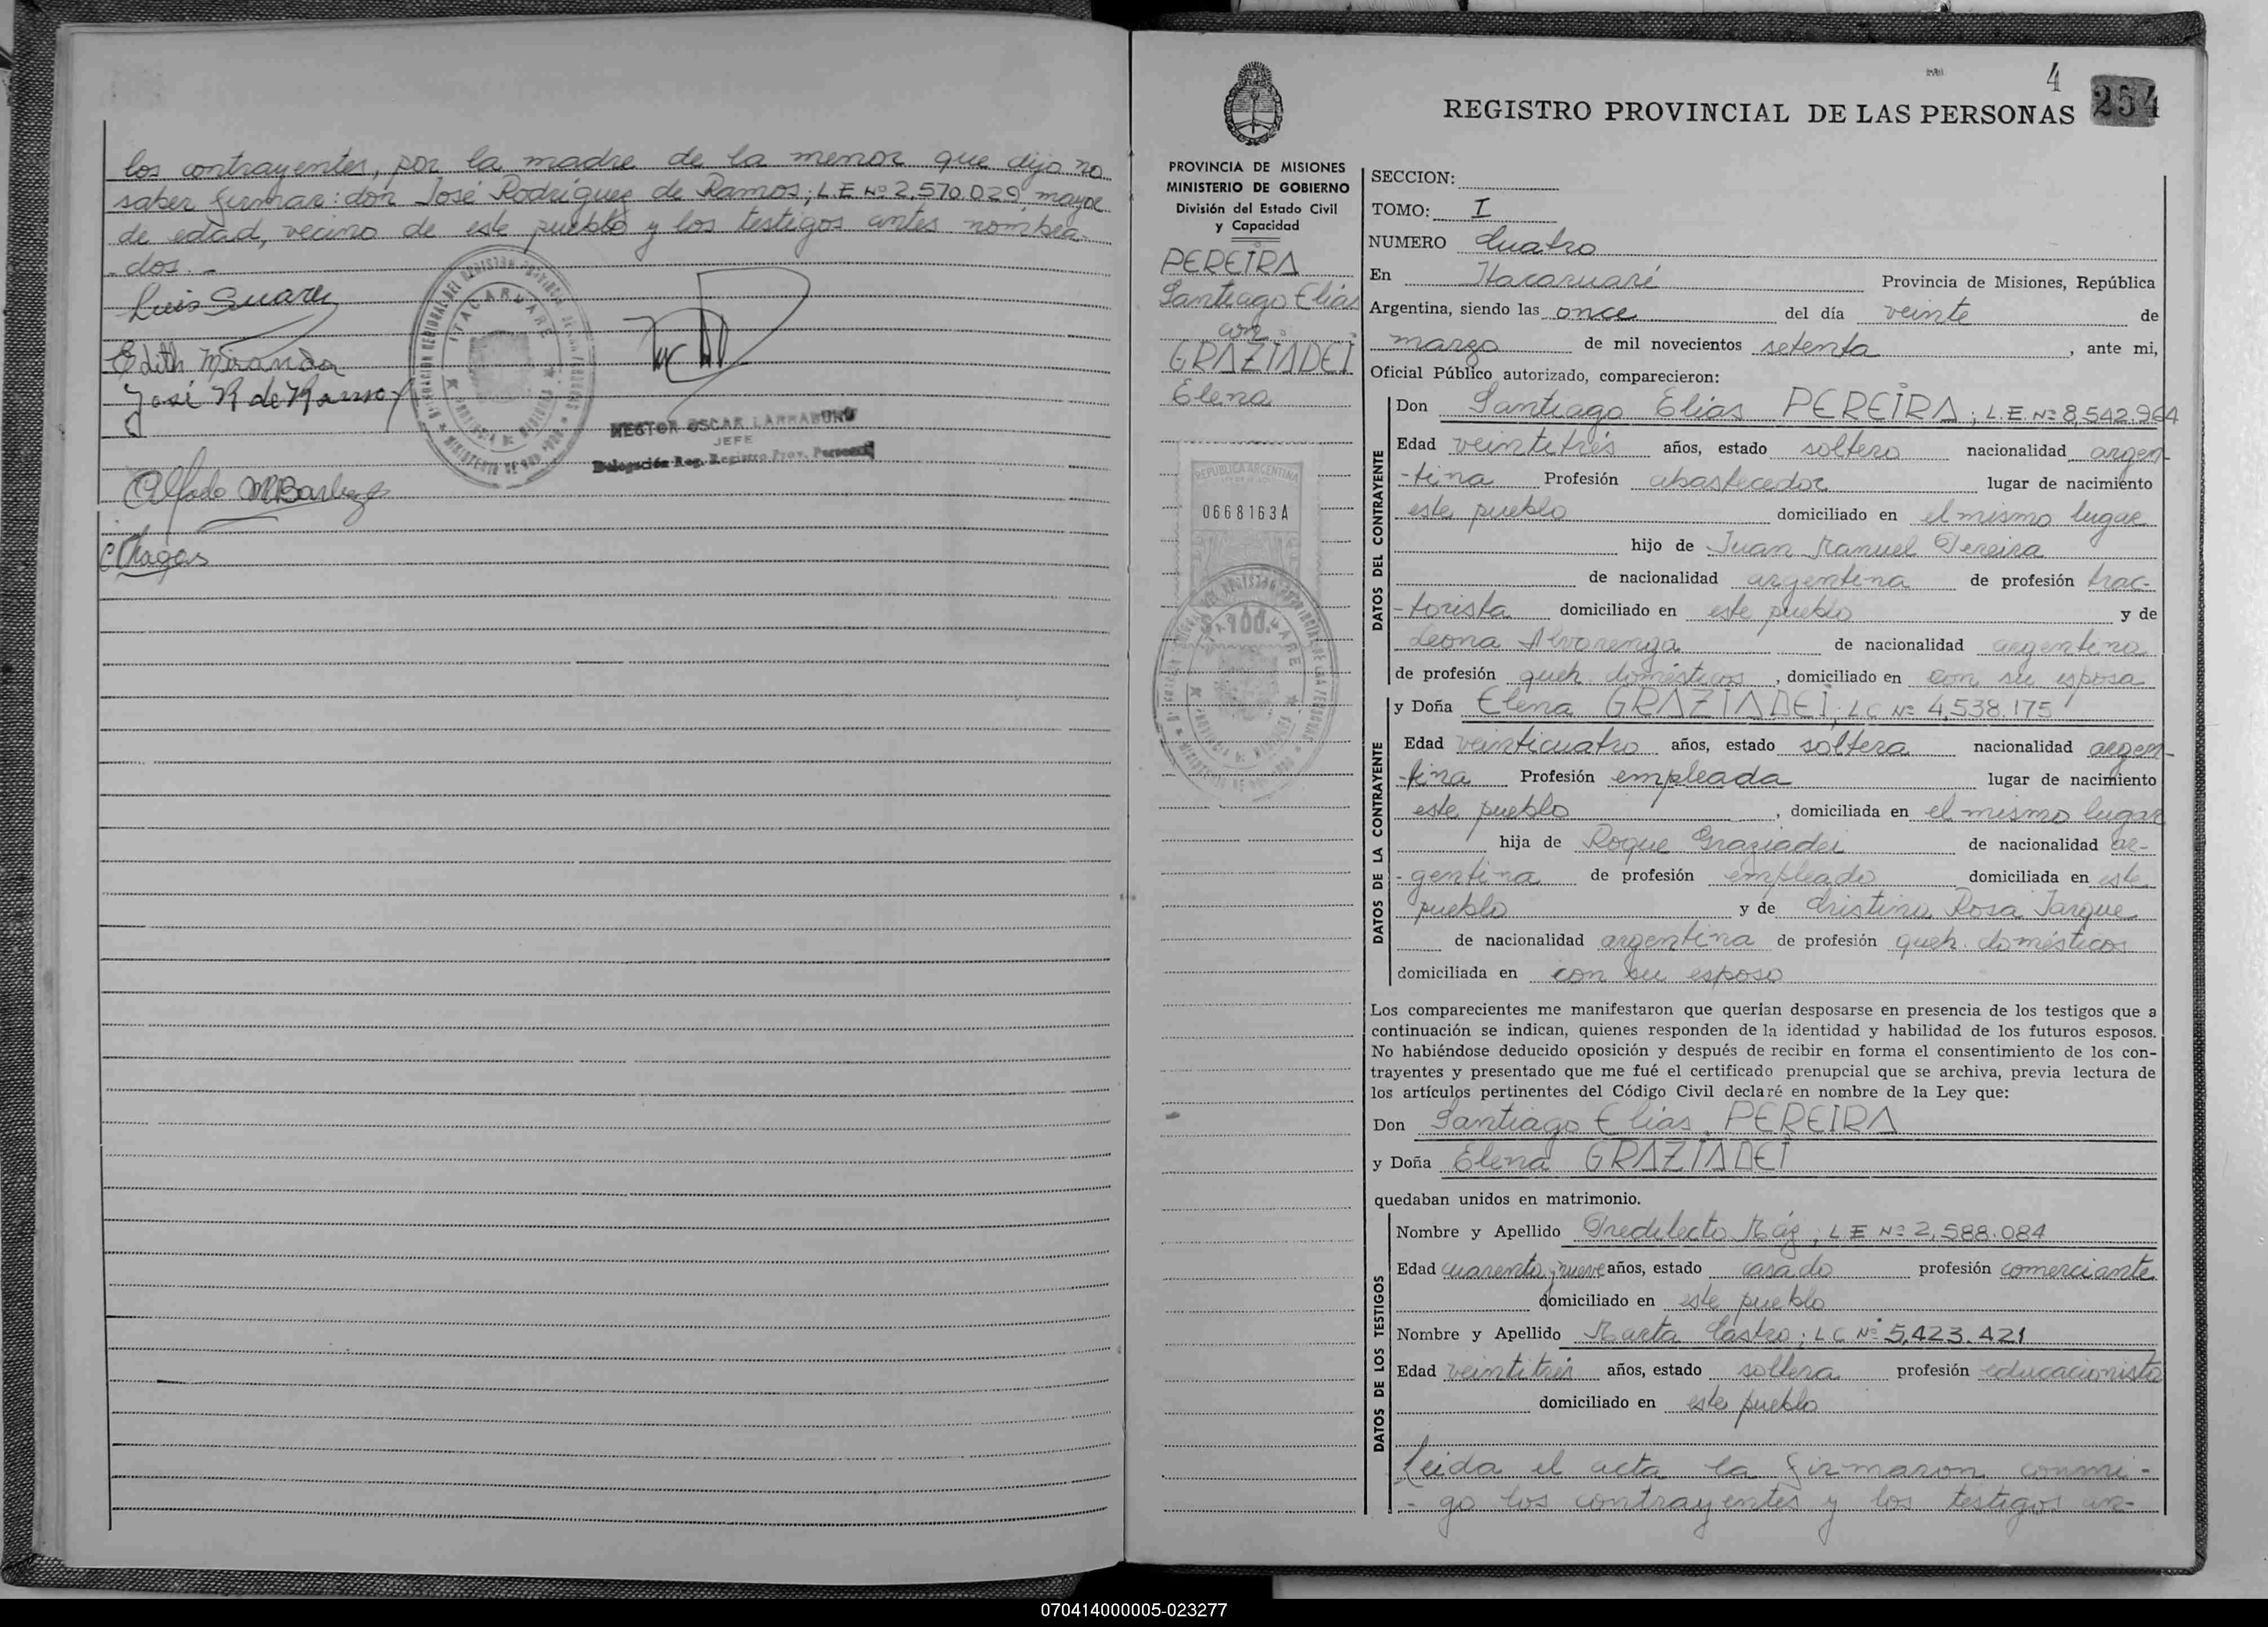 los contrayentes, por la madre de la menor que dijo no
saber firmar: don José Rodríguez de Ramos; L.E. Nº 2.570.029 mayor
de edad, vecino de este pueblo y los testigos antes nombra-
dos.-
Luis Suarez
Edith Miranda
José R de Ramos
ITACARUARE
HECTOR OSCAR LARRABURO
JEFE
Delegación Reg. Registro Prov. Personas
Alfredo M Barboza
Chagas
4
254
REGISTRO PROVINCIAL DE LAS PERSONAS
PROVINCIA DE MISIONES
MINISTERIO DE GOBIERNO
División del Estado Civil
y Capacidad
PEREIRA
Santiago Elías
con
GRAZIADEI
Elena
REPUBLICA ARGENTINA
0668163A
$ 100.-
SECCION:
TOMO: I
NUMERO Cuatro
En Itacaruaré Provincia de Misiones, República
Argentina, siendo las once del día veinte de
marzo de mil novecientos setenta, ante mi,
Oficial Público autorizado, comparecieron:
DATOS DEL CONTRAYENTE
Don Santiago Elías PEREIRA; L.E. Nº 8,542.964
Edad veintetrés años, estado soltero nacionalidad argen-
-tina Profesión abastecedor lugar de nacimiento
este pueblo domiciliado en el mismo lugar
hijo de Juan Manuel Pereira
de nacionalidad argentina de profesión trac-
-torista domiciliado en este pueblo y de
Leona Alvarenga de nacionalidad argentina
de profesión queh. domésticos, domiciliado en con su esposo
DATOS DE LA CONTRAYENTE
y Doña Elena GRAZIADEI; LC Nº 4,538.175
Edad veinticuatro años, estado soltera nacionalidad argen-
-tina Profesión empleada lugar de nacimiento
este pueblo, domiciliada en el mismo lugar
hija de Roque Graziadei de nacionalidad ar-
-gentina de profesión empleado domiciliada en este
pueblo y de Cristina Rosa Jarque
de nacionalidad argentina de profesión queh. domésticos
domiciliada en con su esposo
Los comparecientes me manifestaron que querían desposarse en presencia de los testigos que a
continuación se indican, quienes responden de la identidad y habilidad de los futuros esposos.
No habiéndose deducido oposición y después de recibir en forma el consentimiento de los con-
trayentes y presentado que me fué el certificado prenupcial que se archiva, previa lectura de
los artículos pertinentes del Código Civil declaré en nombre de la Ley que:
Don Santiago Elías PEREIRA
y Doña Elena GRAZIADEI
quedaban unidos en matrimonio.
DATOS DE LOS TESTIGOS
Nombre y Apellido Predilecto Báz; L E Nº 2,588.084
Edad cuarenta y nueve años, estado casado profesión comerciante
domiciliado en este pueblo
Nombre y Apellido Marta Castro; L C Nº 5,423.421
Edad veintitrés años, estado soltera profesión educacionista
domiciliado en este pueblo
Leída el acta la firmaron conmi-
-go los contrayentes y los testigos an-
070414000005-023277